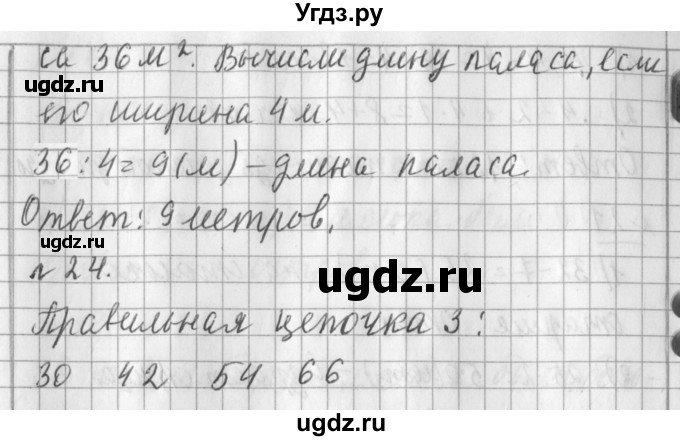 Угдз.ру
са 36 м². Вычисли длину паласа, если
его ширина 4 м.
36 : 4 = 9 (м) – длина паласа.
Ответ: 9 метров.
№ 24.
Правильная цепочка 3:
30 42 54 66
uгдз.ru
uгдз.ru
uгдз.ru
uгдз.ru
uгдз.ru
uгдз.ru